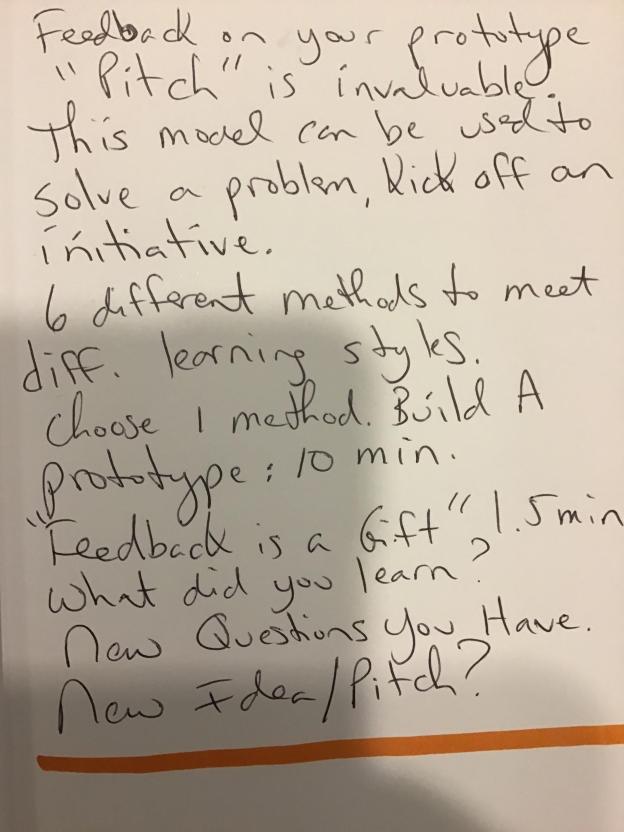 Feedback on your prototype
"Pitch" is invaluable.
This model can be used to
solve a problem, kick off an
initiative.
6 different methods to meet
diff. learning styles.
choose 1 method. Build A
prototype: 10 min.
"Feedback is a Gift" 1.5 min
What did you learn?
New Questions you Have.
New Idea/Pitch?